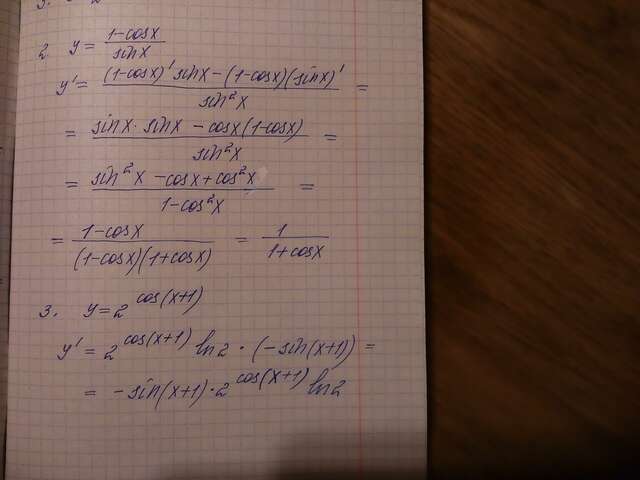 2. y = (1-cosx)/(sinx)
y' = ((1-cosx)' sinx - (1-cosx)(sinx)')/(sin²x) =
= (sinx · sinx - cosx(1-cosx))/(sin²x) =
= (sin²x - cosx + cos²x)/(1-cos²x) =
= (1-cosx)/((1-cosx)(1+cosx)) = 1/(1+cosx)
3. y = 2^cos(x+1)
y' = 2^cos(x+1) ln2 · (-sin(x+1)) =
= -sin(x+1) · 2^cos(x+1) ln2